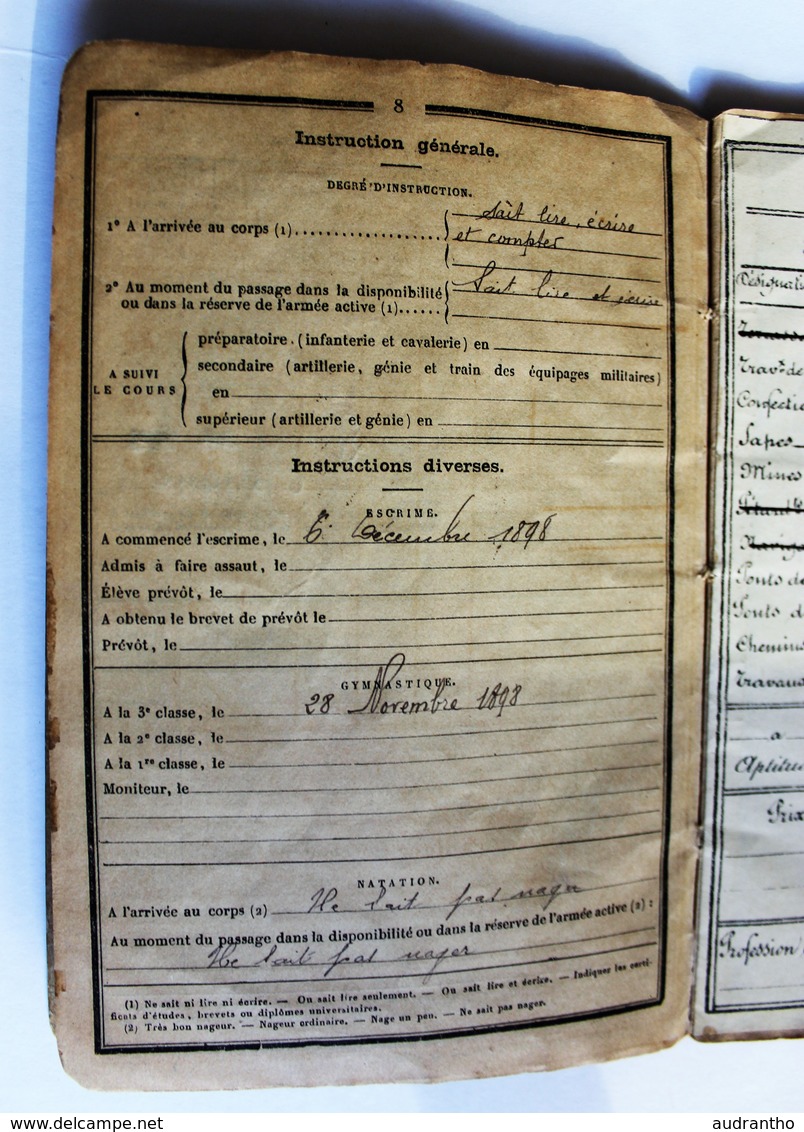 8
Instruction générale.
DEGRÉ D'INSTRUCTION.
1° A l'arrivée au corps (1)....................
Sait lire, écrire
et compter
2° Au moment du passage dans la disponibilité
ou dans la réserve de l'armée active (1)......
Sait lire et écrire
A SUIVI
LE COURS
préparatoire (infanterie et cavalerie) en
secondaire (artillerie, génie et train des équipages militaires)
en
supérieur (artillerie et génie) en
Instructions diverses.
ESCRIME.
A commencé l'escrime, le 6 Décembre 1898
Admis à faire assaut, le
Élève prévôt, le
A obtenu le brevet de prévôt le
Prévôt, le
GYMNASTIQUE.
A la 3e classe, le 28 Novembre 1898
A la 2e classe, le
A la 1re classe, le
Moniteur, le
NATATION.
A l'arrivée au corps (2) Ne sait pas nager
Au moment du passage dans la disponibilité ou dans la réserve de l'armée active (2) :
Ne sait pas nager
(1) Ne sait ni lire ni écrire. — Ou sait lire seulement. — Ou sait lire et écrire. — Indiquer les certi-
ficats d'études, brevets ou diplômes universitaires.
(2) Très bon nageur. — Nageur ordinaire. — Nage un peu. — Ne sait pas nager.
Désignati
Trav. de
Confectio
Sapes
Mines
Ponts de
Ponts d
Chemins
Travaux
a
Aptitu
Prix
Profession
audrantho